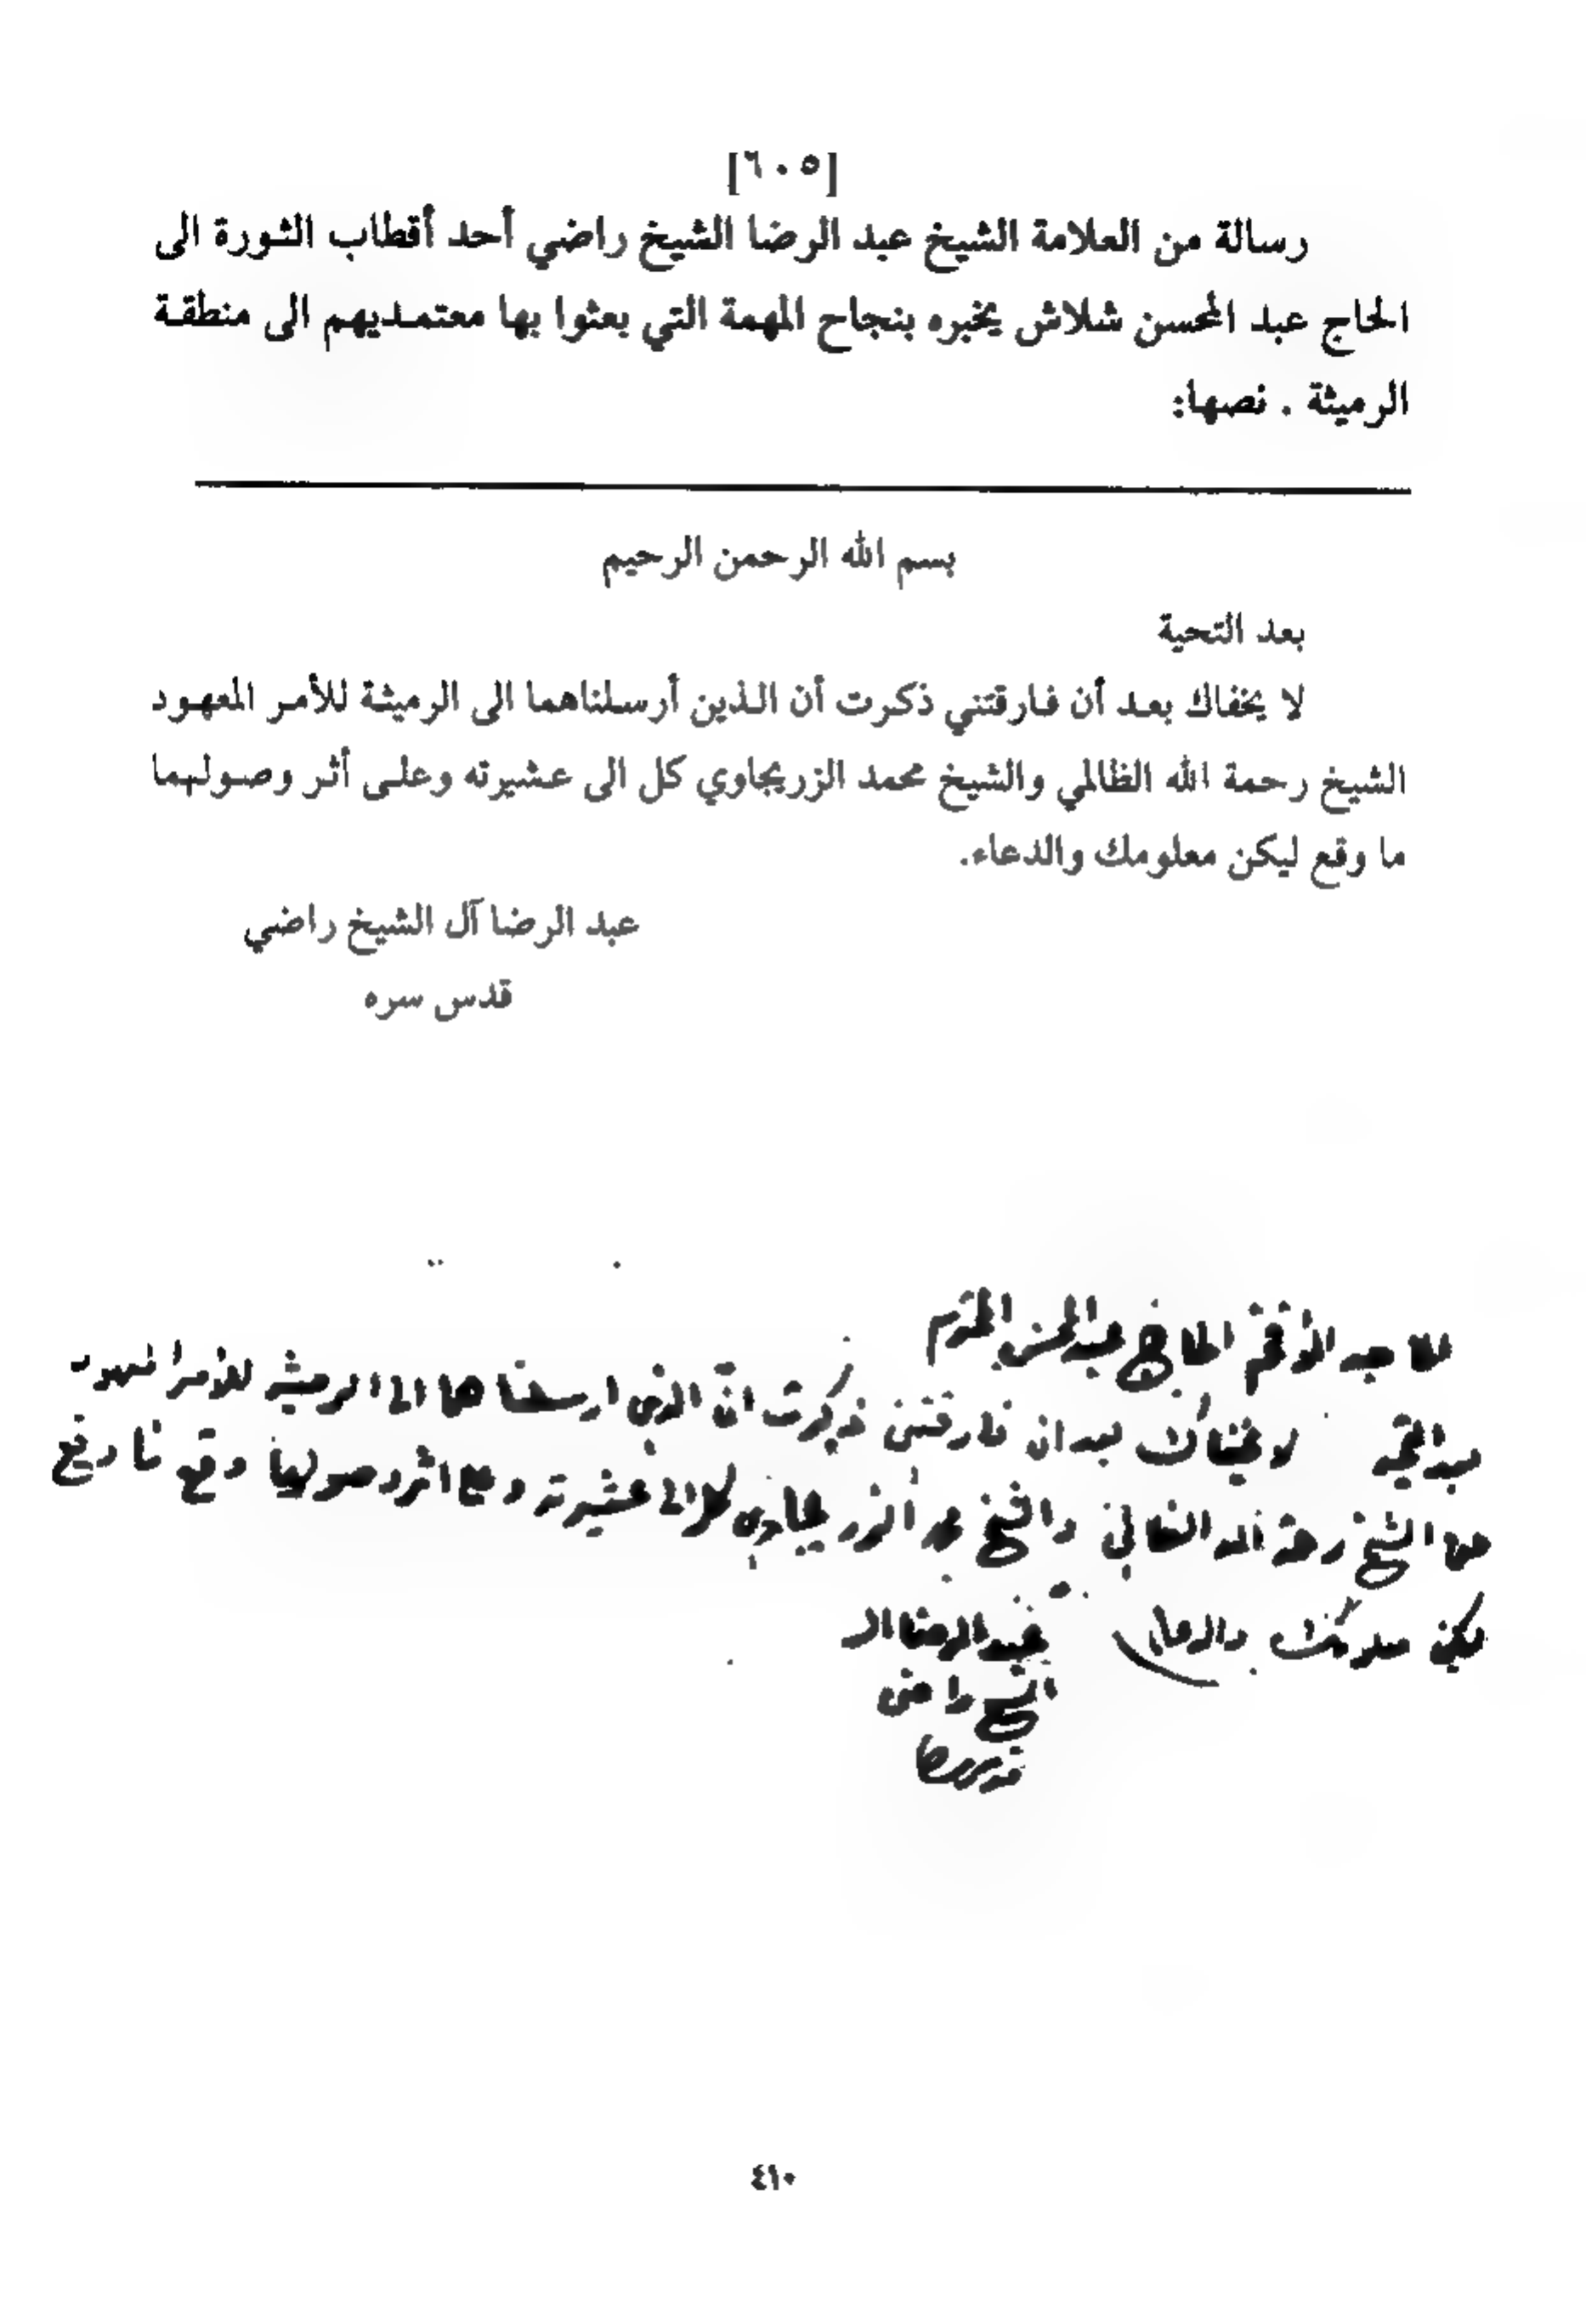 [٦٠٥]
رسالة من العلامة الشيخ عبد الرضا الشيخ راضي أحد أقطاب الثورة الى
الحاج عبد المحسن شلاش يخبره بنجاح المهمة التي بعثوا بها معتمديهم الى منطقة
الرميثة . نصها:
بسم الله الرحمن الرحيم
بعد التحية
لا يخفاك بعد أن فارقتني ذكرت أن الذين أرسلناهما الى الرميثة للأمر المعهود
الشيخ رحمة الله الظالمي والشيخ محمد الزريجاوي كل الى عشيرته وعلى أثر وصولهما
ما وقع ليكن معلومك والدعاء.
عبد الرضا آل الشيخ راضي
قدس سره
الأفخم الحاج عبد المحسن المحترم
بعد التحية لا يخفاك بعد ان فارقتني ذكرت ان الذين ارسلناهما الى الرميثه للأمر المعهود
هما الشيخ رحمة الله الظالمي والشيخ محمد الزريجاوي كلا الى عشيرته وعلى اثر وصولهما وقع ما وقع
ليكن معلومك والدعاء
عبد الرضا ال
الشيخ راضي
٤١٠